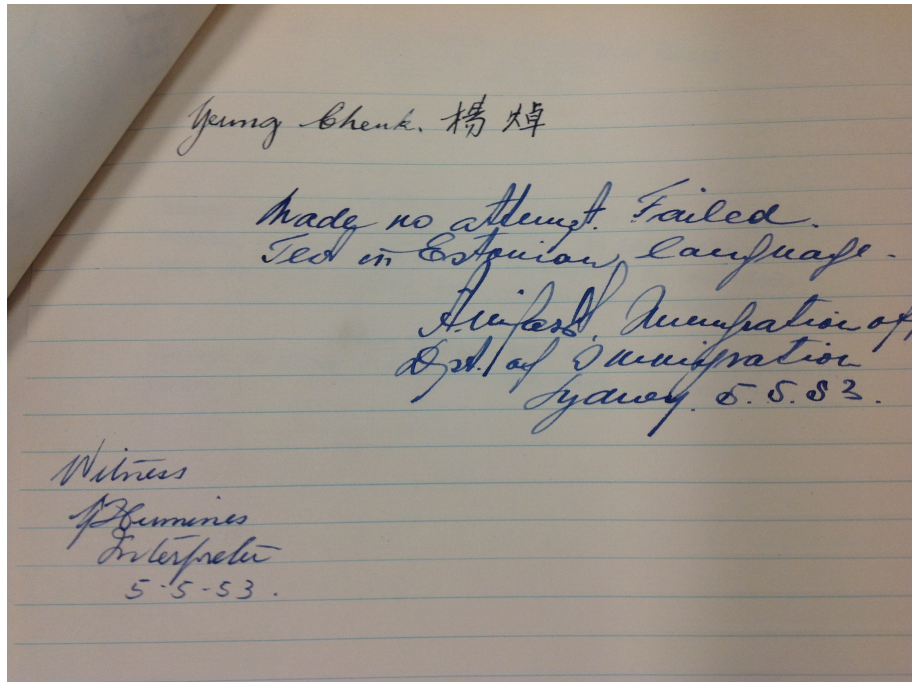 Yeung Cheuk. 楊焯
Made no attempt. Failed.
Test in Estonian language.
Immigration of
Dpt. of Immigration
Sydney. 5.5.53.
Witness
Interpreter
5-5-53.